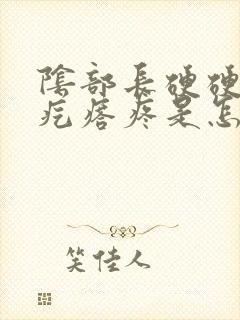 陰部長硬硬
疙瘩疼是怎
笑佳人